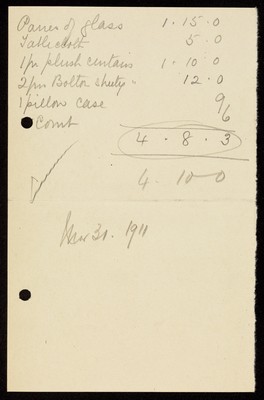 Panes of glass 1 - 15 - 0
Tablecloth 5 - 0
1 pr plush curtains 1 - 10 - 0
2 prs Bolton sheetg " 12 - 0
1 pillow case 9
Count 6
4 - 8 - 3
4 - 10 - 0
30. 1911